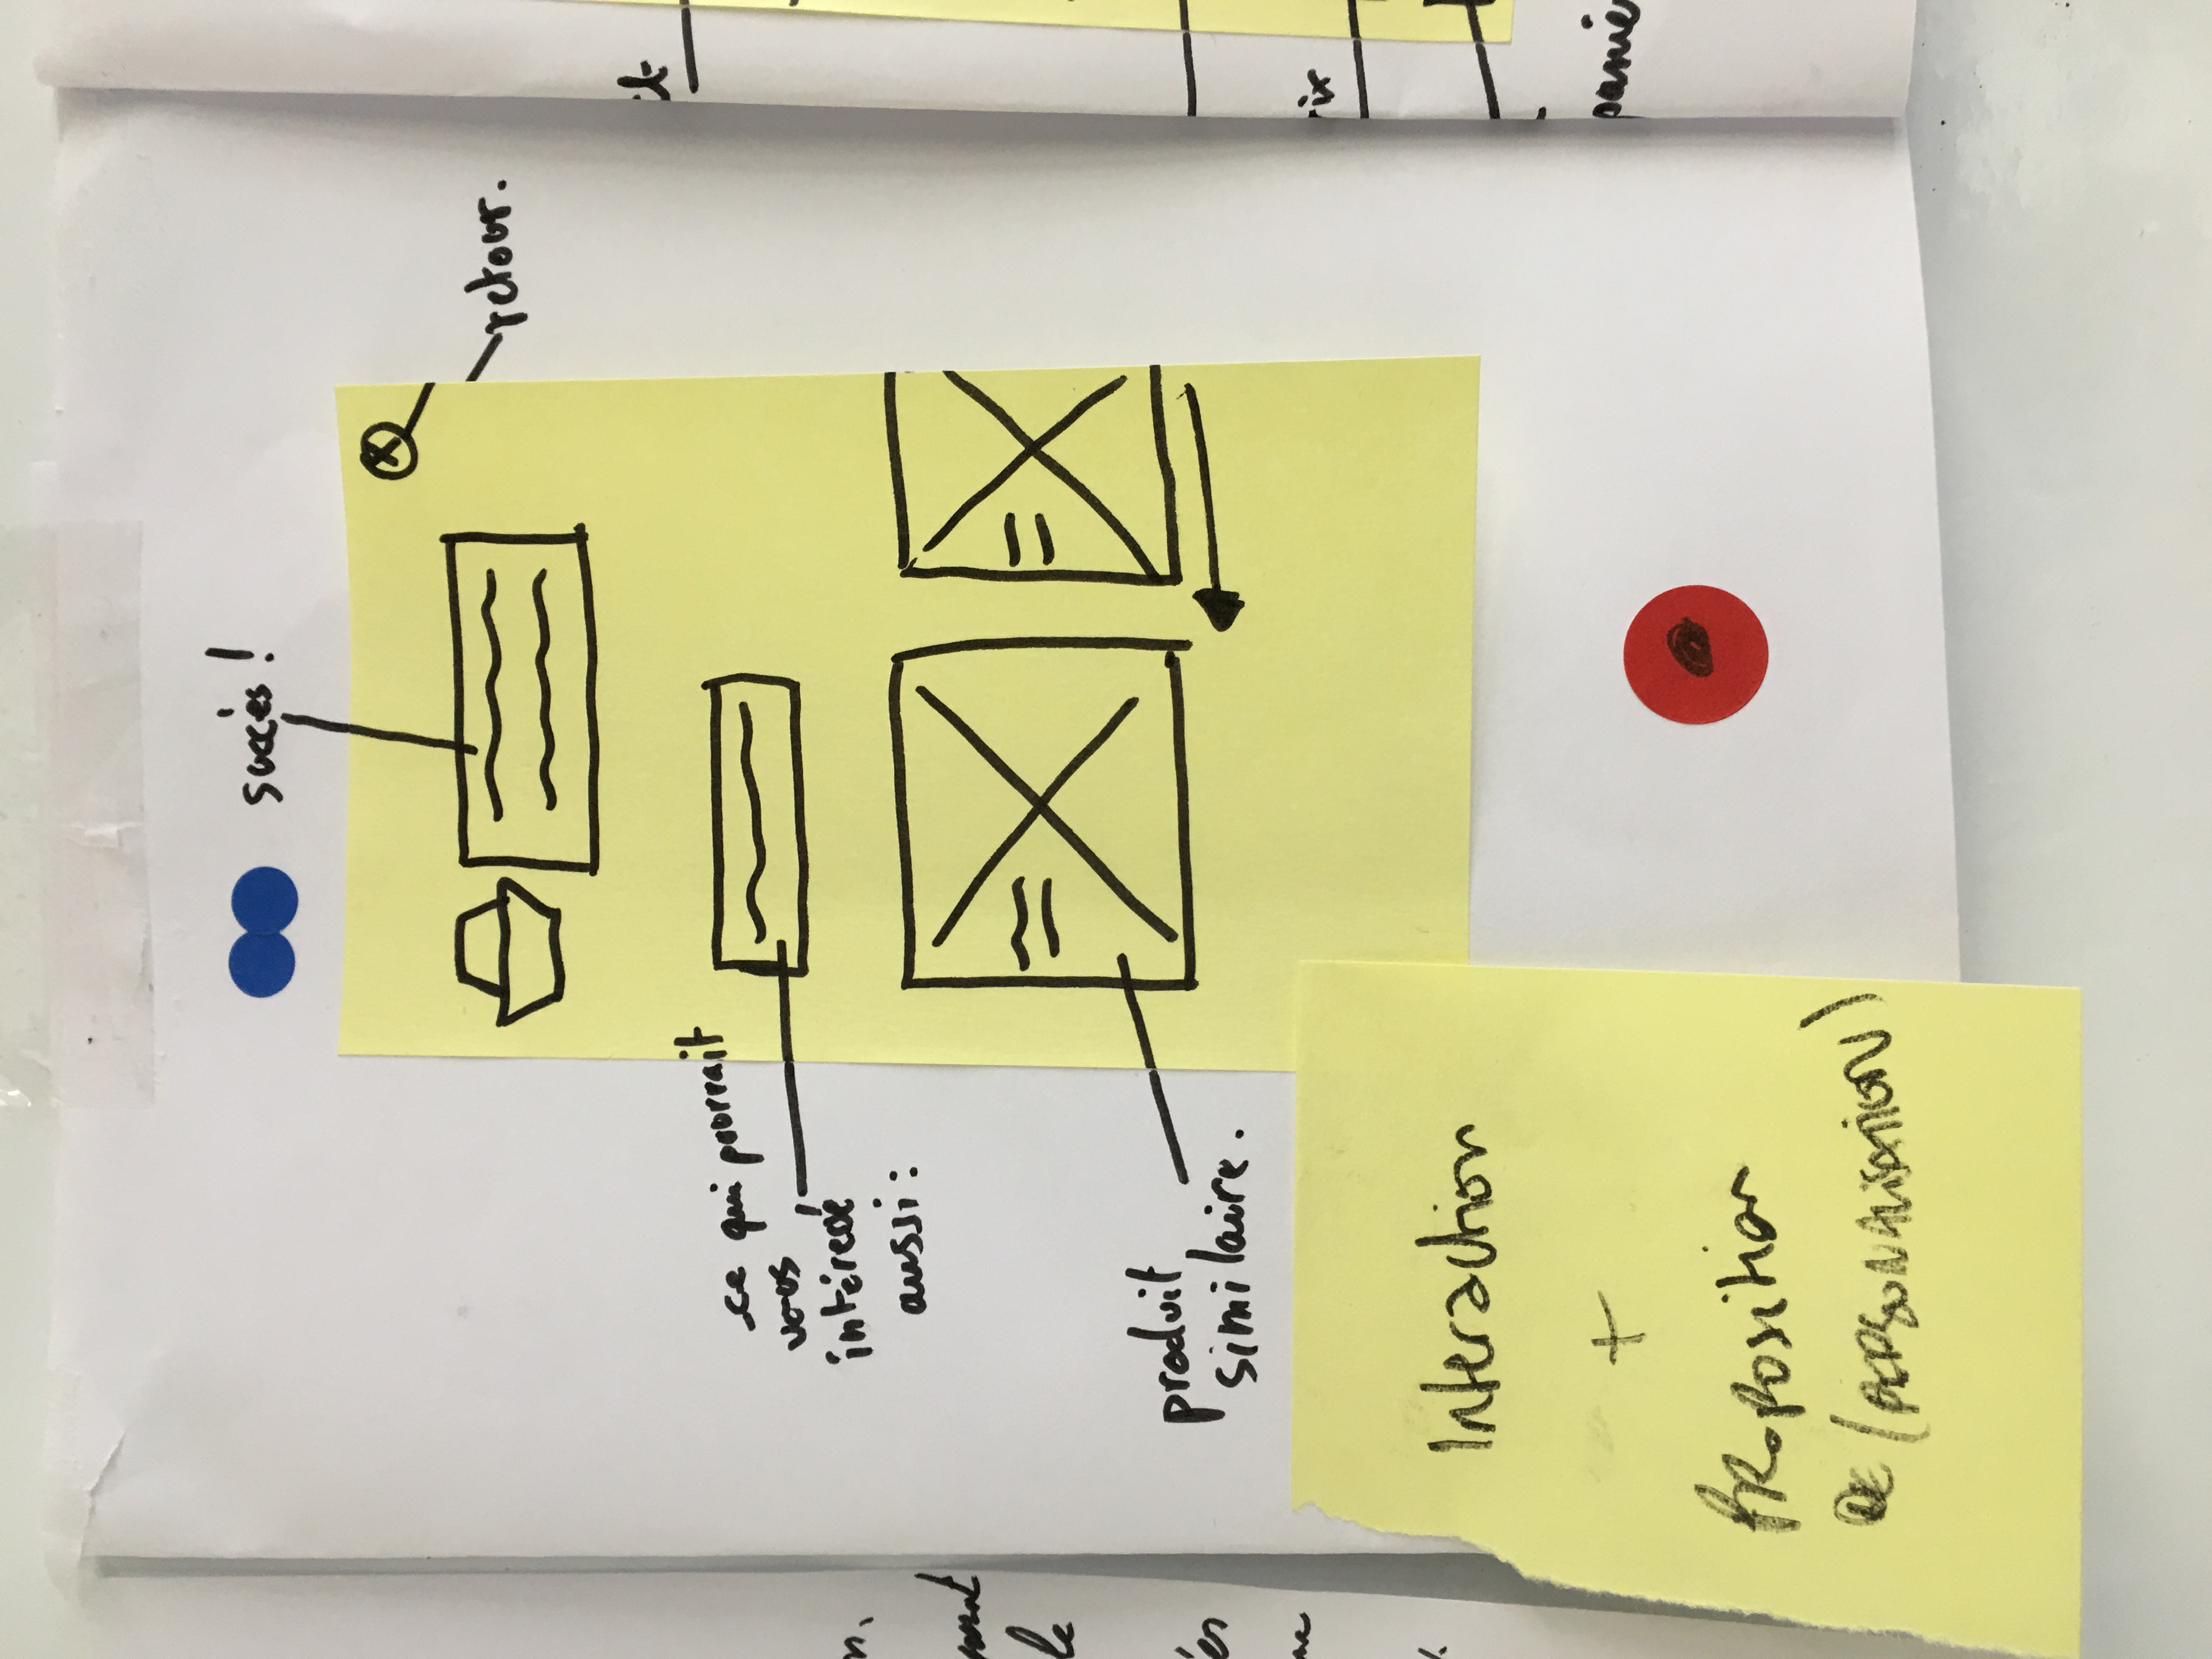 succès !
retour.
ce qui pourrait
vous
intéressé
aussi :
produit
similaire.
Interaction
+
PRoposition
DE (PERSONALISATION)
n,
le
ix
panie